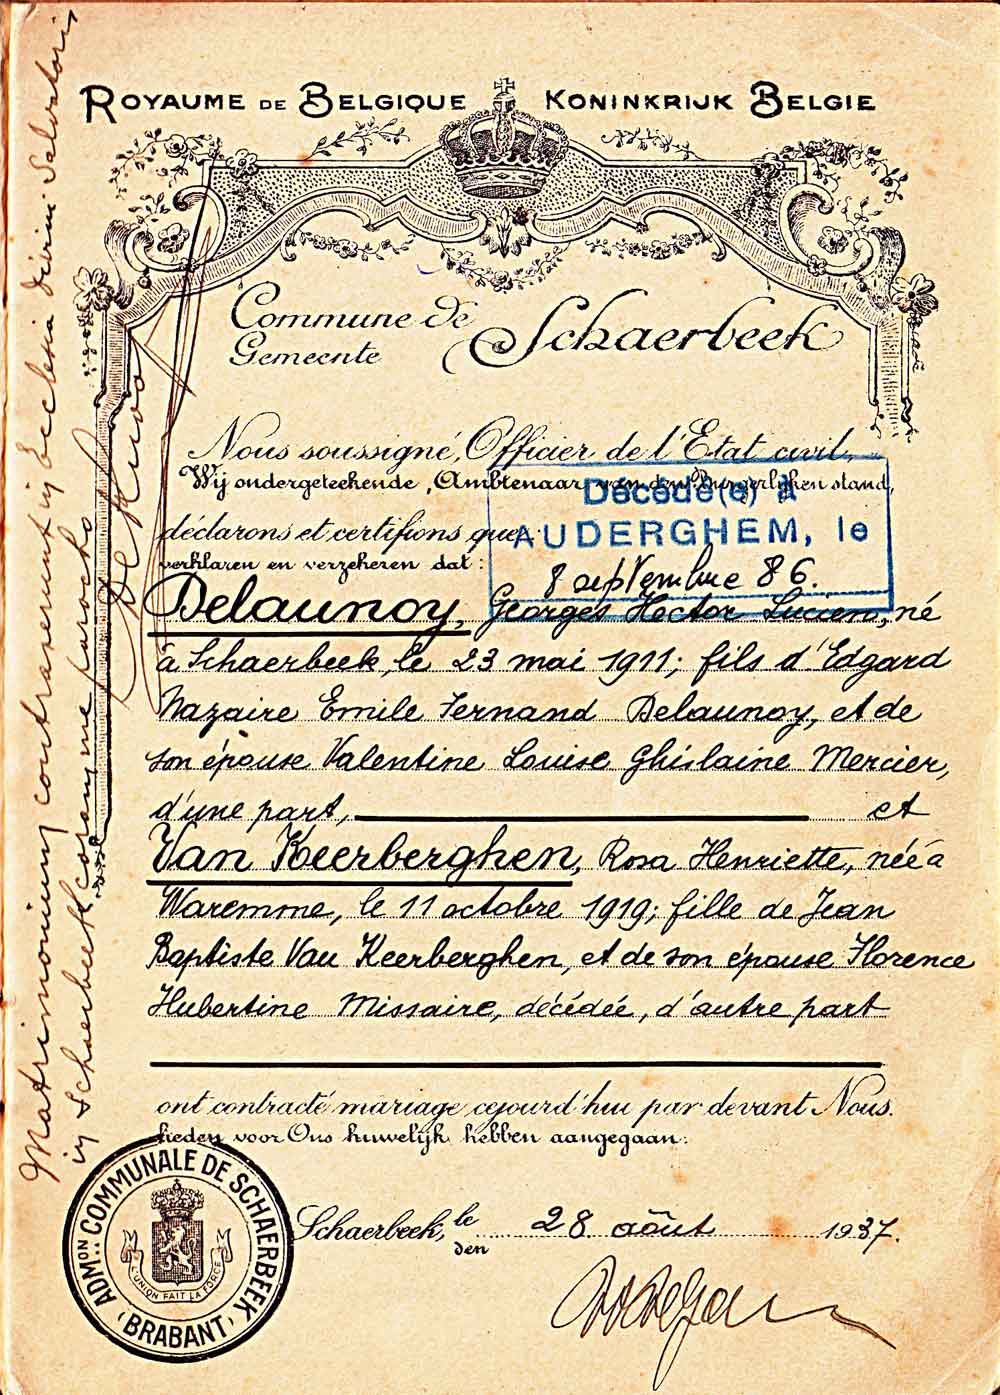 ROYAUME DE BELGIQUE KONINKRIJK BELGIE
Commune de Schaerbeek
Gemeente
Nous soussigné, Officier de l'Etat civil,
Wij ondergeteekende, Ambtenaar van den Burgerlijken stand,
Décédé(e) à
déclarons et certifions que
AUDERGHEM, le
verklaren en verzekeren dat:
8 septembre 86.
Delaunoy, Georges Hector Lucien, né
à Schaerbeek, le 23 mai 1911; fils d'Edgard
Nazaire Emile Fernand Delaunoy, et de
son épouse Valentine Louise Ghislaine Mercier,
d'une part, et
Van Keerberghen, Rosa Henriette, née à
Waremme, le 11 octobre 1919; fille de Jean
Baptiste Van Keerberghen, et de son épouse Florence
Hubertine Missaire, décédée, d'autre part
ont contracté mariage cejourd'hui par devant Nous.
heden voor Ons huwelijk hebben aangegaan:
Schaerbeek, le 28 août 1937.
den
ADMON COMMUNALE DE SCHAERBEEK
(BRABANT)
L'UNION FAIT LA FORCE
Matrimonium contraxerunt in Ecclesia Divini Salvatoris
in Schaerbeek coram me parocho